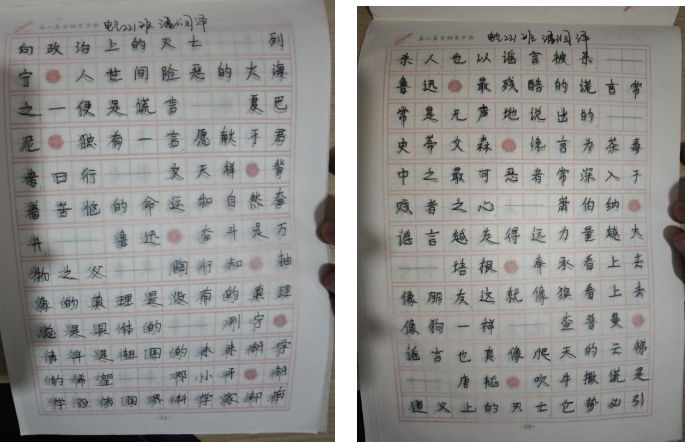 电气221班 潘润泽
向政治上的灭亡——列
宁 人世间险恶的大海
之一便是谎言——夏巴
尼 独有一言愿献于君
者曰行——文天祥 背
着苦恼的命运和自然奋
斗——鲁迅 奋斗是万
物之父——陶行知 抽
象的真理是没有的真理
总是具体的——列宁
请许是祖国的未来科学
的希望——邓小平 科
学没有国界科学家却有
电气221班 潘润泽
杀人也以谣言被杀——
鲁迅 最残酷的谎言常
常是无声地说出的——
史蒂文森 谗言为荼毒
中之最可恶者常深入于
贱者之心——萧伯纳
谣言越走得远力量越大
——培根 奉承看上去
像朋友这就像狼看上去
像狗一样——查普曼
谣言也真像爬天的云梯
——唐甄 吹牛撒谎是
道义上的灭亡它势必引